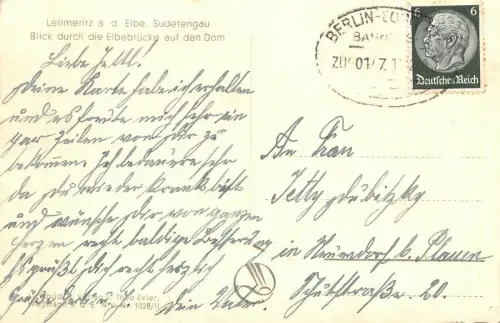 Leitmeritz a. d. Elbe, Sudetengau
Blick durch die Elbebrücke auf den Dom
BERLIN-
BAHN
ZUG01
6
Deutsches Reich
Liebe Jettl!
Deine Karte habe ich erhalten
und es freute mich sehr ein
par Zeilen von Dir zu
bekommen. Ich bedauere sehr
da Du wieder krank bist
und wünsche Dir von ganzen
herzen recht baldige Besserung
Es grüßt dich recht herzlich
Dein Vater.
An Frau
Jetty Dubitzky
in Neundorf b. Plauen
Schulstraße 20.
Theo Exler,
1028/II